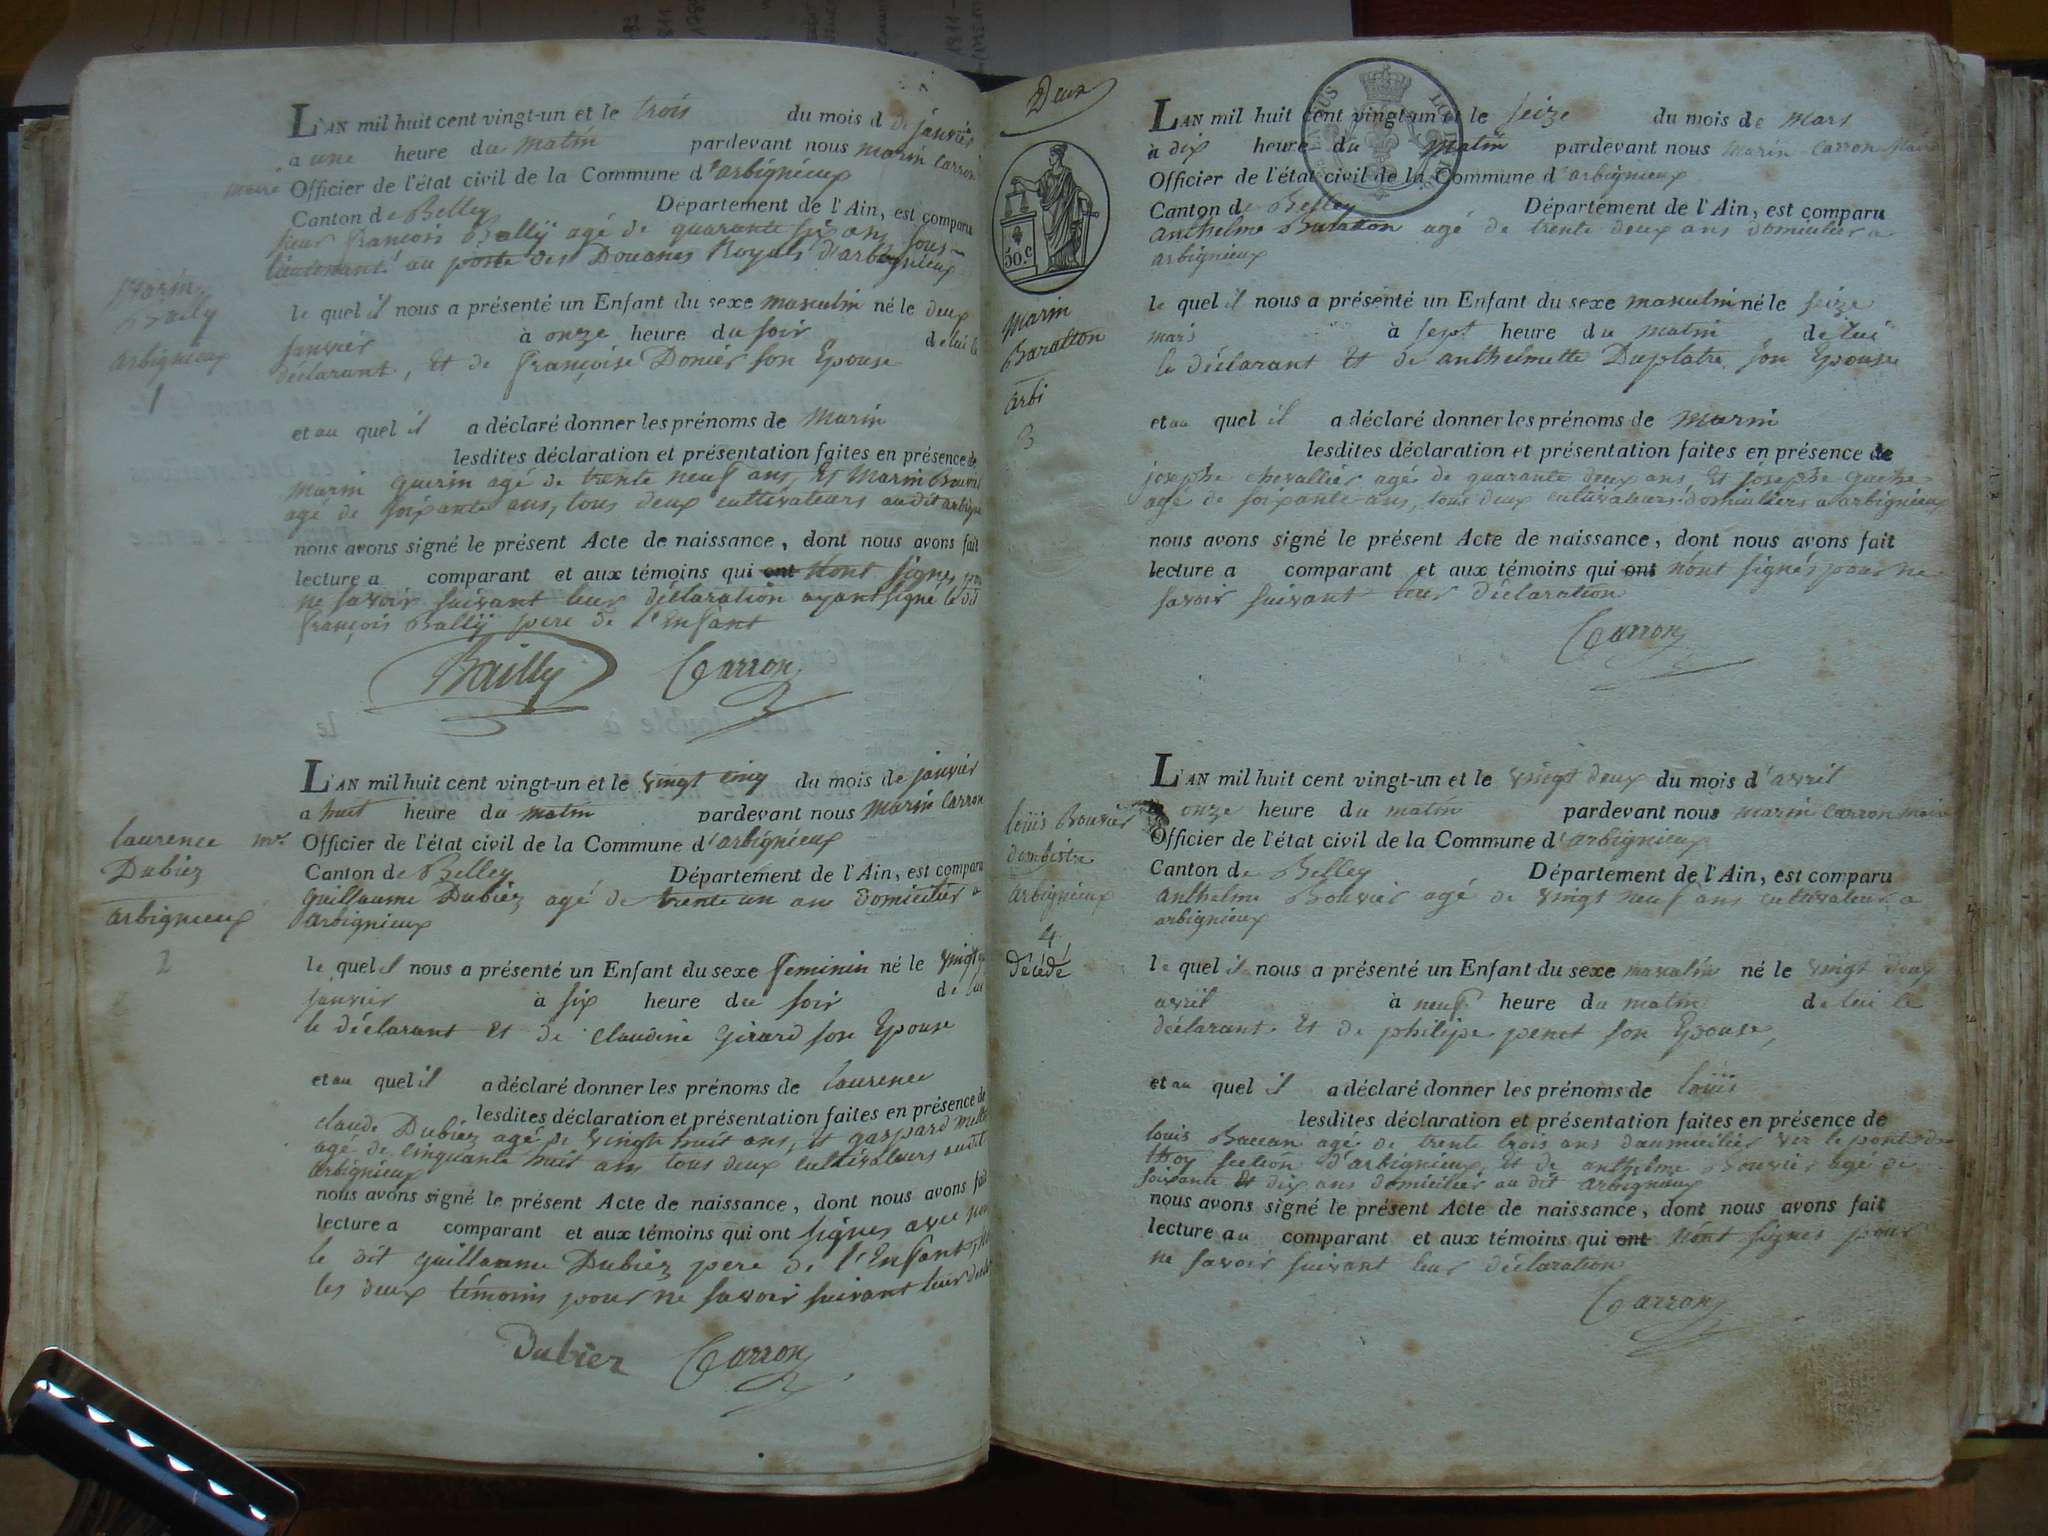 L'AN mil huit cent vingt-un et le trois du mois d de janvier
a une heure du matin pardevant nous marin Carron
maire Officier de l'état civil de la Commune d'arbignieux
Canton de Belley Département de l'Ain, est comparu
sieur françois Bailly agé de quarante six ans sous-
lieutenant au poste des Douanes Royals d'arbignieux
Marin
Bailly
arbignieux
1
le quel il nous a présenté un Enfant du sexe masculin né le deux
janvier à onze heure du soir de lui le
déclarant, Et de françoise Donier son Epouse
et au quel il a déclaré donner les prénoms de Marin
lesdites déclaration et présentation faites en présence de
marin guerin agé de trente neuf ans, Et Marin
agé de soixante ans, tous deux cultivateurs audit
nous avons signé le présent Acte de naissance, dont nous avons fait
lecture a comparant et aux témoins qui ont n'ont signés
ne savoir suivant leur déclaration ayant signé le dit
françois Bailly pere de l'Enfant
Bailly Carron
L'AN mil huit cent vingt-un et le vingt cinq du mois de janvier
a huit heure du matin pardevant nous marin Carron
mre Officier de l'état civil de la Commune d'arbignieux
Canton de Belley Département de l'Ain, est comparu
guillaume Dubiez agé de trente un ans Domicilier a
arbignieux
laurence
Dubiez
arbignieux
2
le quel il nous a présenté un Enfant du sexe feminin né le vingt
janvier à six heure du soir de lui
le déclarant Et de claudine girard son Epouse
et au quel il a déclaré donner les prénoms de laurence
lesdites déclaration et présentation faites en présence de
claude Dubiez agé de vingt huit ans, Et gaspard
agé de cinquante huit ans tous deux cultivateurs audit
arbignieux
nous avons signé le présent Acte de naissance, dont nous avons fait
lecture a comparant et aux témoins qui ont signés avec
le dit guillaume Dubiez pere de l'Enfant,
les deux témoins pour ne savoir suivant leur
Dubiez Carron
Deux
50.c
L'AN mil huit cent vingt-un et le seize du mois de mars
à dix heure du matin pardevant nous Marin Carron Maire
Officier de l'état civil de la Commune d'arbignieux
Canton de Belley Département de l'Ain, est comparu
anthelme Baratton agé de trente deux ans domicilier a
arbignieux
marin
Baratton
arbi
3
le quel il nous a présenté un Enfant du sexe masculin né le seize
mars à sept heure du matin de lui
le déclarant Et de anthelmette Duplatre son Epouse
et au quel il a déclaré donner les prénoms de marin
lesdites déclaration et présentation faites en présence de
josephe chevallier agé de quarante deux ans, Et josephe
agé de soixante ans, tous deux cultivateurs domiciliers a arbignieux
nous avons signé le présent Acte de naissance, dont nous avons fait
lecture a comparant et aux témoins qui ont n'ont signés pour ne
savoir suivant leur déclaration
Carron
L'AN mil huit cent vingt-un et le vingt deux du mois d'avril
onze heure du matin pardevant nous marin Carron Maire
Officier de l'état civil de la Commune d'arbignieux
Canton de Belley Département de l'Ain, est comparu
anthelme Bouvier agé de vingt neuf ans cultivateur a
arbignieux
loüis Bouvier
arbignieux
4
Décédé
le quel il nous a présenté un Enfant du sexe masculin né le vingt deux
avril à neuf heure du matin de lui le
déclarant Et de philipe penet son Epouse,
et au quel il a déclaré donner les prénoms de loüis
lesdites déclaration et présentation faites en présence de
louis agé de trente trois ans daumicilier ver le pont de
section d'arbignieux, Et de anthelme Bouvier agé de
soixante Et dix ans domicilier au dit arbignieux
nous avons signé le présent Acte de naissance, dont nous avons fait
lecture au comparant et aux témoins qui ont n'ont signés pour
ne savoir suivant leur déclaration
Carron